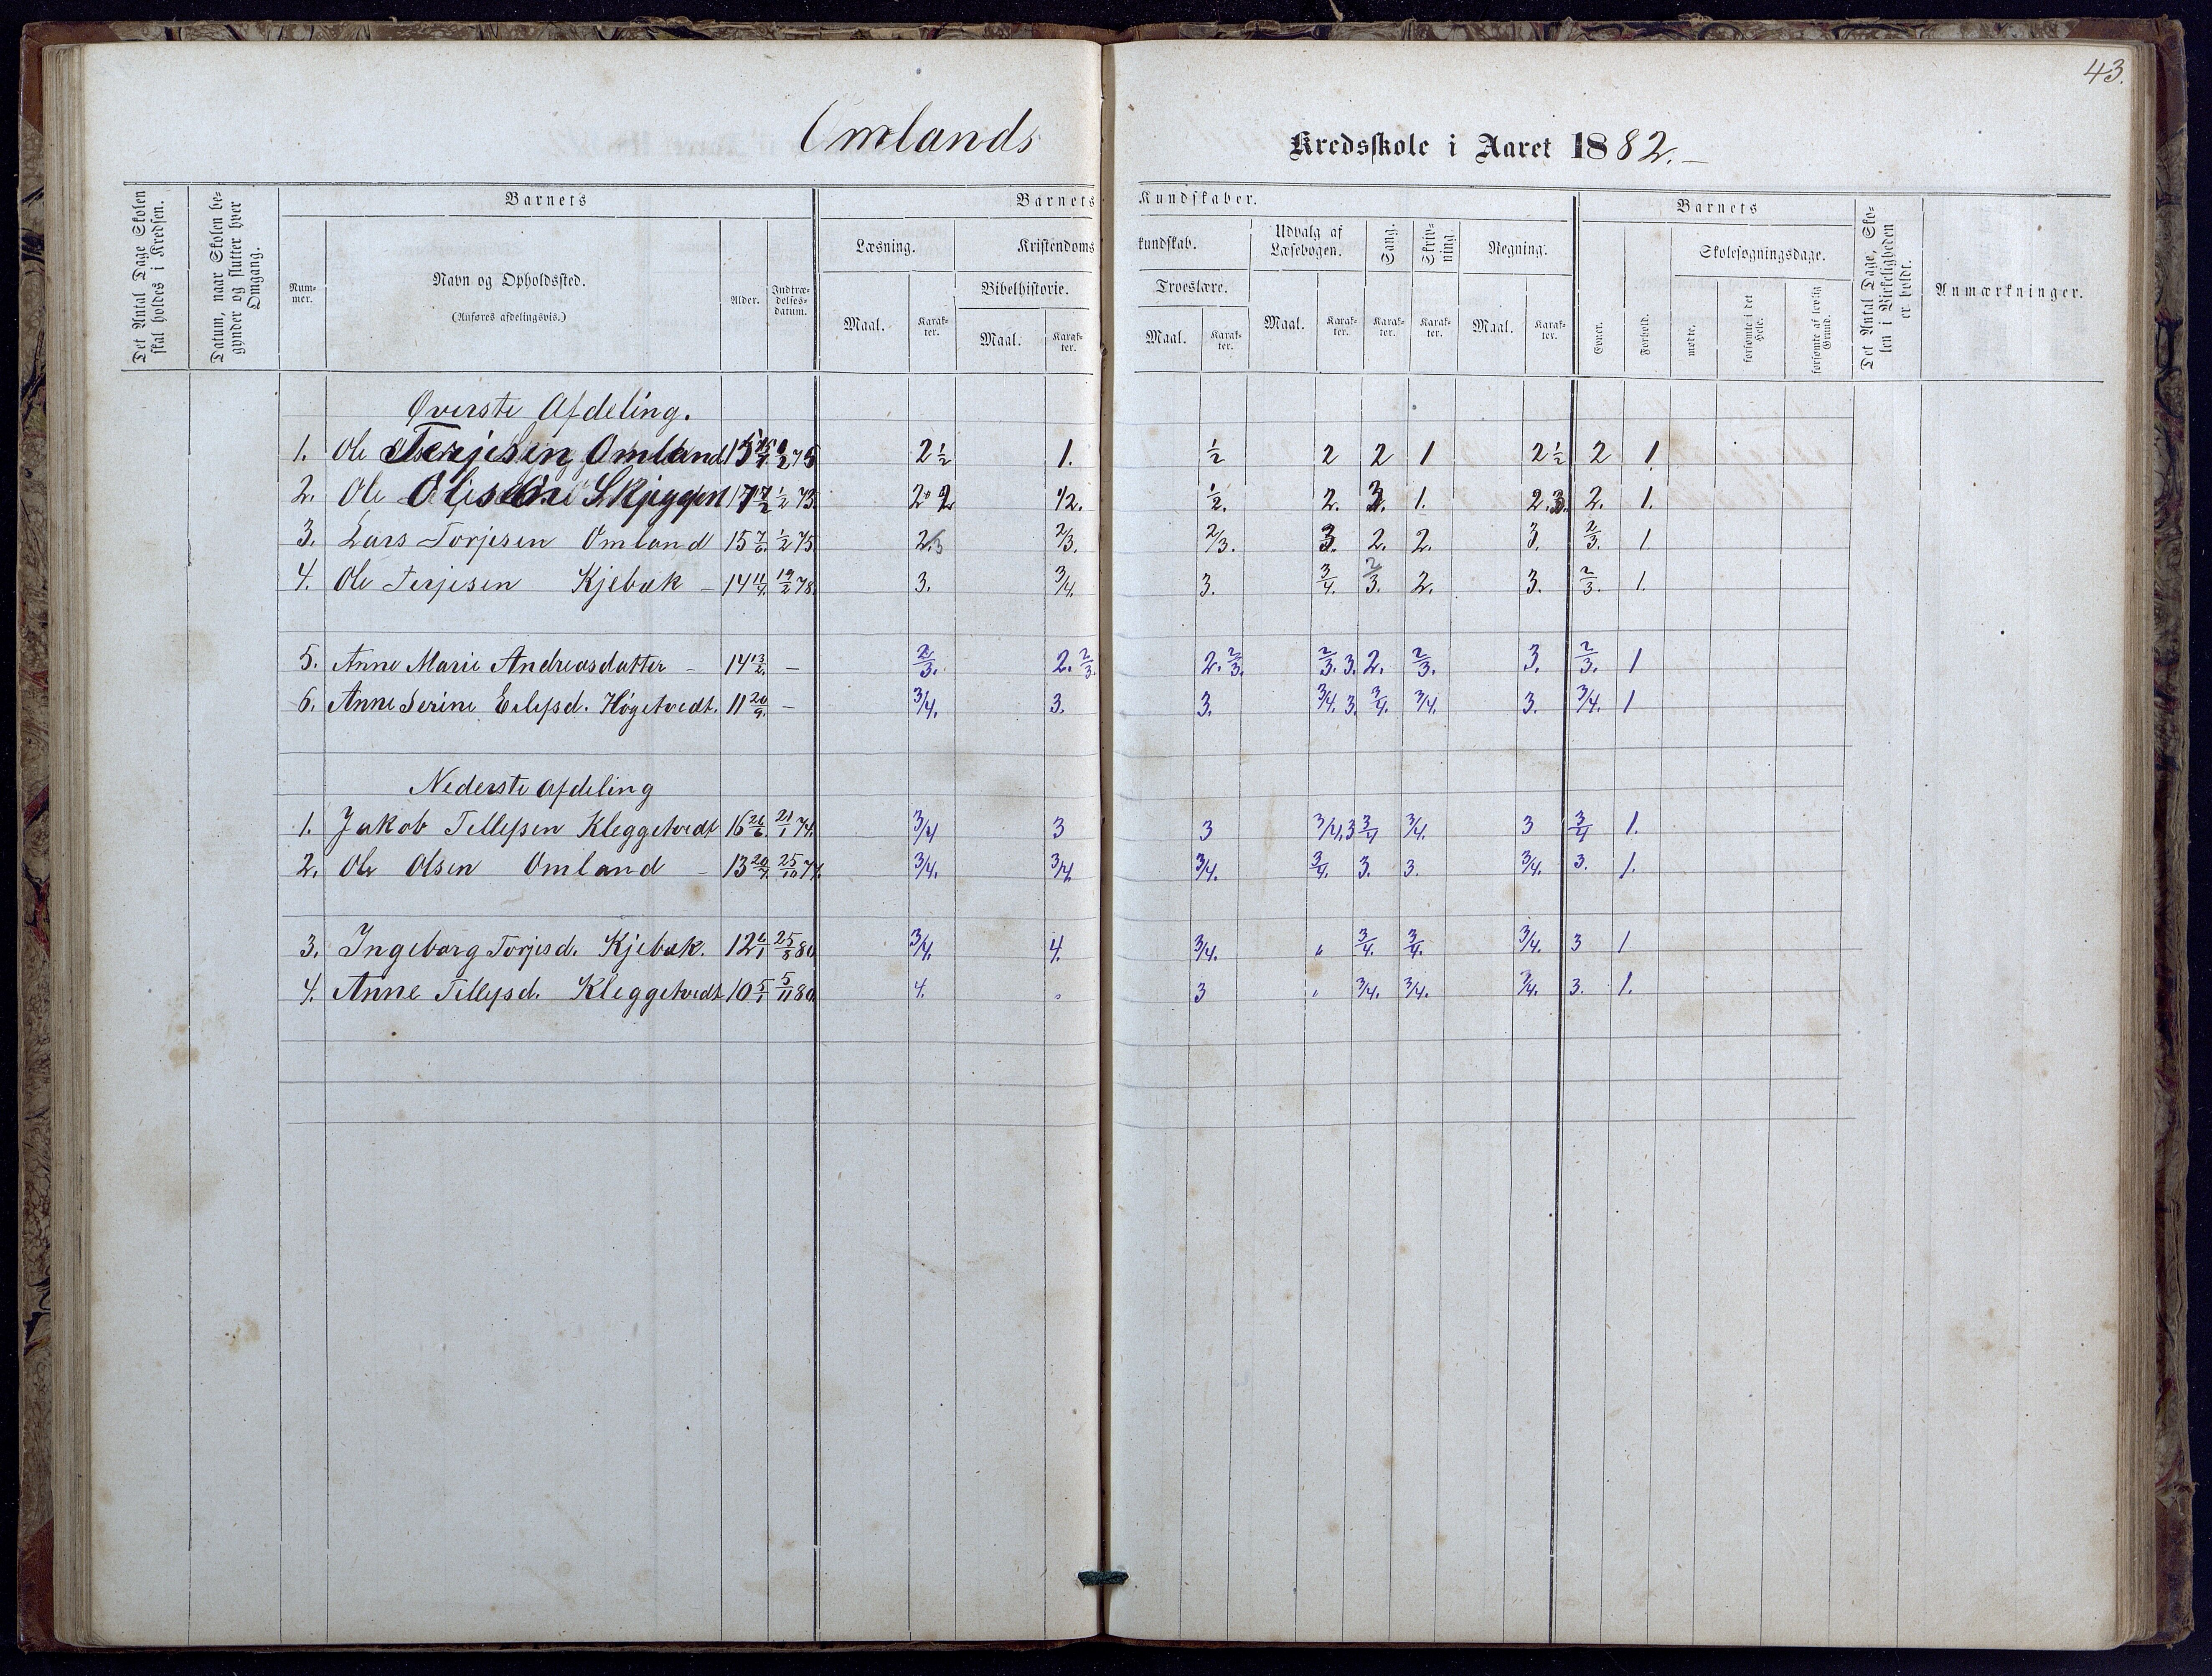 43.
Omlands Kredsskole i Aaret 1882.
Det Antal Dage Skolen skal holdes i Kredsen.
Datum, naar Skolen begynder og slutter hver Omgang.
Barnets
Nummer.
Navn og Opholdssted.
(Anføres afdelingsvis.)
Alder.
Indtrædelsesdatum.
Barnets Kundskaber.
Læsning.
Maal. Karakter.
Kristendomskundskab.
Bibelhistorie.
Maal. Karakter.
Troeslære.
Maal. Karakter.
Udvalg af Læsebogen.
Maal. Karakter.
Sang.
Karakter.
Skrivning.
Karakter.
Regning.
Maal. Karakter.
Barnets
Evner.
Forhold.
Skolesøgningsdage.
mødte.
forsømte i det Hele.
forsømte af lovlig Grund.
Det Antal Dage, Skolen i Virkeligheden er holdt.
Anmærkninger.
Øverste Afdeling.
1. Ole Terjesen Omland 15 2½ 1. ½ 2 2 1 2½ 2 1.
2. Ole 17 ½ 73. 1/2. ½. 2. 1. 2. 1.
3. Lars Torjesen Omland 15 7/6. ½ 75. 2.3 2/3. 2/3. 3. 2. 2. 3. 2/3. 1.
4. Ole Terjesen Kjebæk - 14 11/4. 19/2 78. 3. 3/4. 3. 3/4. 2/3. 2. 3. 2/3. 1.
5. Anne Marie Andreasdatter - 14 13/2. - 2/3. 2. 2/3. 2. 2/3. 2/3. 3. 2. 2/3. 3. 2/3. 1
6. Anne Serine Eilefsd. Høgetvedt. 11 20/9. - 3/4. 3. 3. 3/4. 3. 3/4. 3/4. 3. 3/4. 1
Nederste Afdeling
1. Jakob Tellefsen Kleggetvedt 16 26/6. 21/1 74. 3/4 3 3 3/4. 3 3/4 3/4. 3 3/4 1.
2. Ole Olsen Omland - 13 20/4. 25/10 77. 3/4. 3/4 3/4. 3/4. 3. 3. 3/4. 3. 1.
3. Ingeborg Torjesd. Kjebæk. 12 6/1 25/8 80 3/4. 4. 3/4. " 3/4. 3/4. 3/4. 3 1
4. Anne Tellefsd. Kleggetvedt 10 5/1 5/11 80. 4. 3 " 3/4. 3/4. 3/4. 3. 1.